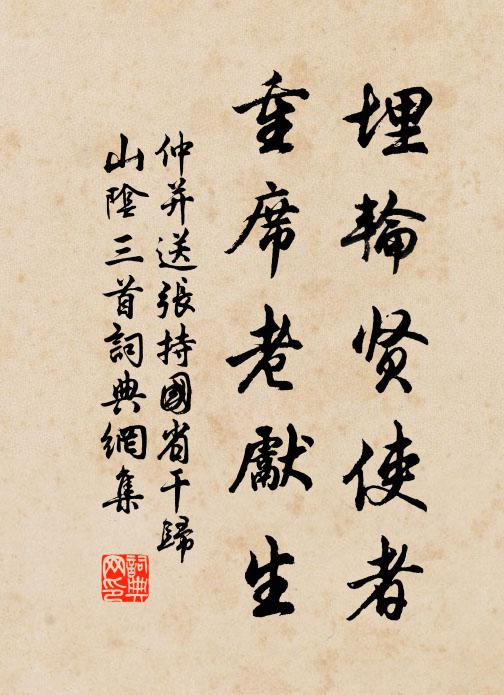 埋輪贤使者
重席老獻生
仲并送張持國省干歸
山陰三首詞典網集
詞典
网印